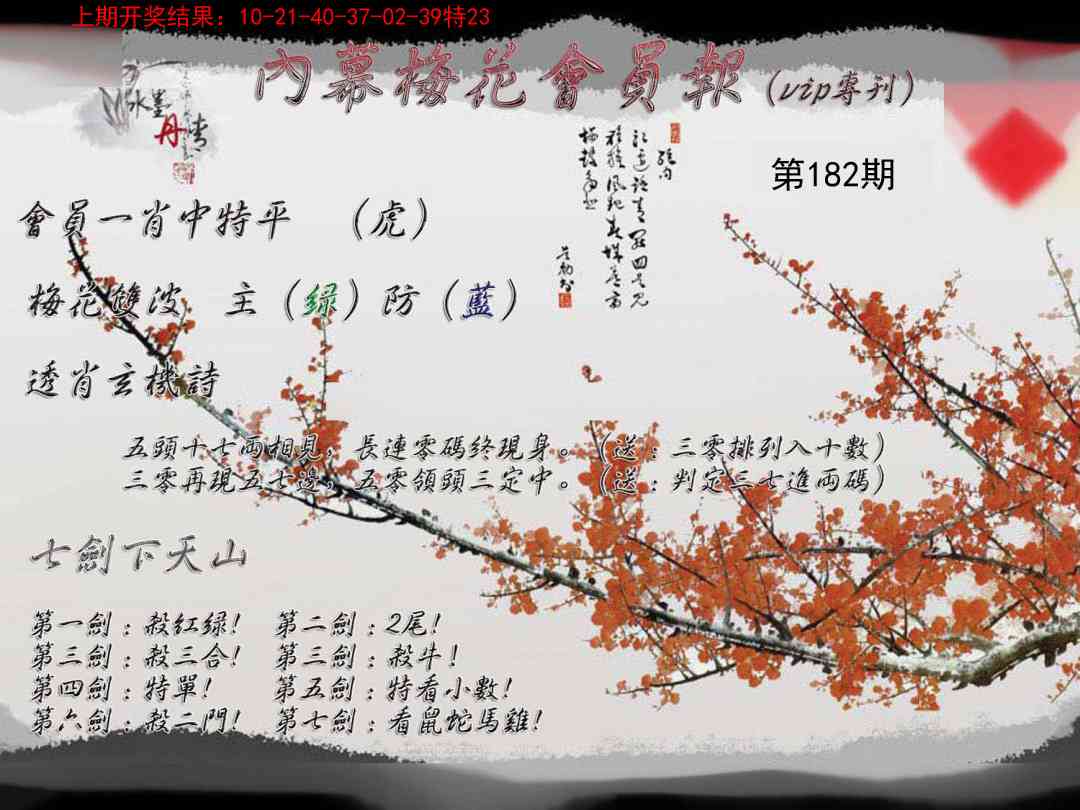 上期开奖结果：10-21-40-37-02-39特23
內幕梅花會員報（vip專刊）
水墨
丹情
第182期
會員一肖中特平　（虎）
梅花雙波　主（绿）防（藍）
透肖玄機詩
五頭十七兩相見，長連零碼终現身。（送：三零排列入十數）
三零再現五七邊，五零領頭三定中。（送：判定三七進兩碼）
七劍下天山
第一劍：殺紅绿！　第二劍：2尾！
第三劍：殺三合！　第三劍：殺牛！
第四劍：特單！　第五劍：特看小數！
第六劍：殺二門！　第七劍：看鼠蛇馬雞！